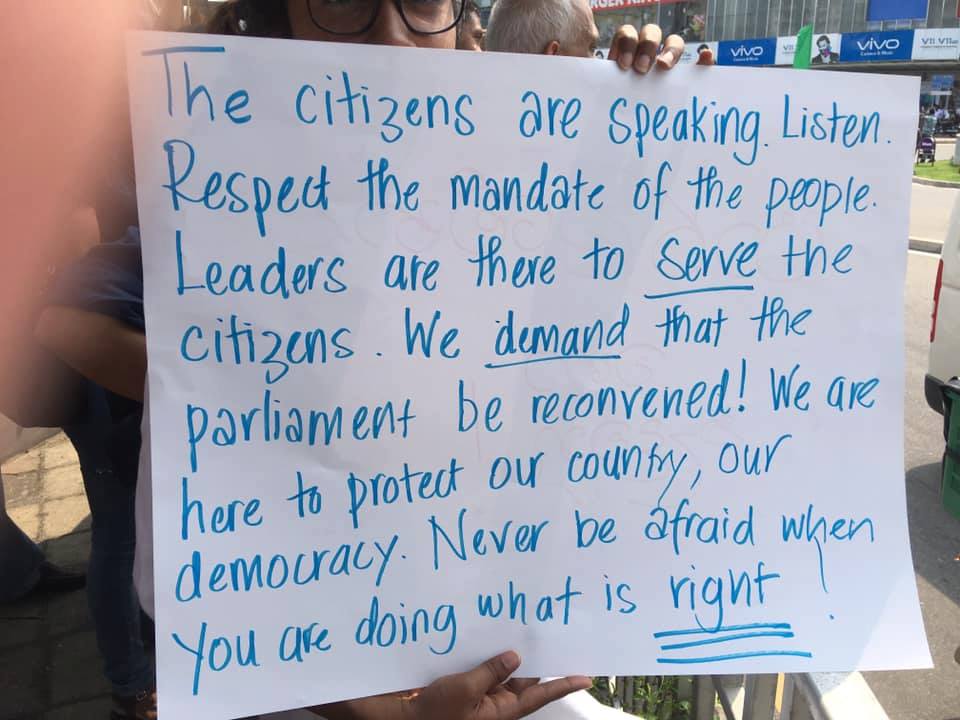 RGER KING
vivo
vivo
V11 V11
The citizens are speaking. Listen.
Respect the mandate of the people.
Leaders are there to serve the
citizens. We demand that the
parliament be reconvened! We are
here to protect our country, our
democracy. Never be afraid when
you are doing what is right!